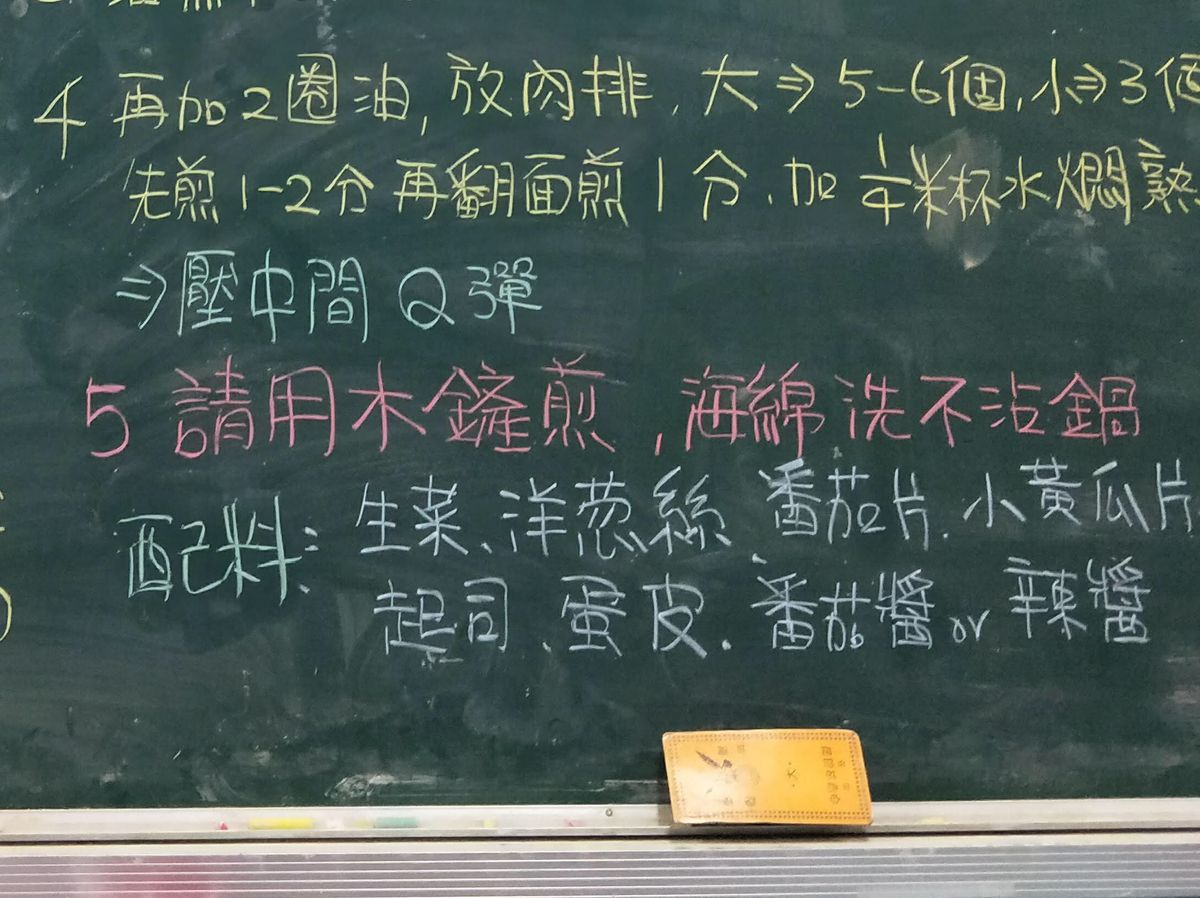 4 再加2圈油，放肉排，大⇒5-6個，小⇒3個
先煎1-2分再翻面煎1分、加1/4米杯水燜熟
⇒壓中間Q彈
5 請用木鏟煎，海綿洗不沾鍋
配料：生菜、洋葱絲、番茄片、小黃瓜片
起司、蛋皮、番茄醬or辣醬